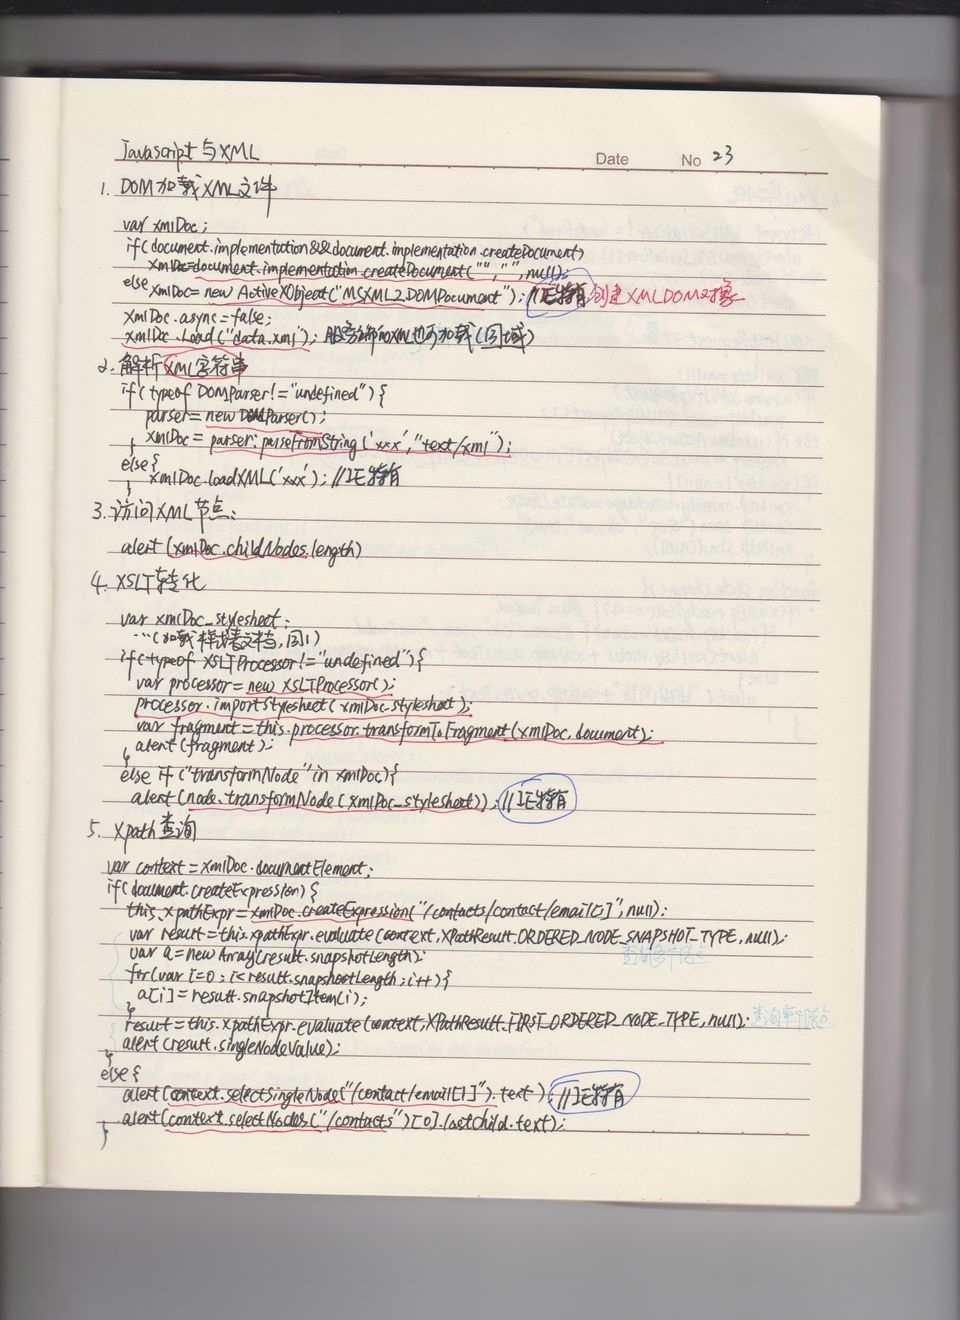 Javascript与XML
Date No 23
1. DOM加载XML文件
var xmlDoc;
if(document.implementation&&document.implementation.createDocument)
xmlDoc=document.implementation.createDocument("","",null);
else xmlDoc=new ActiveXObject("MSXML2.DOMDocument"); //IE特有 创建XMLDOM对象
xmlDoc.async=false;
xmlDoc.load("data.xml"); 服务器端的XML也可加载(同域)
2. 解析XML字符串
if(typeof DOMParser!="undefined"){
parser=new DOMParser();
xmlDoc=parser.parseFromString('xxx',"text/xml");
}
else{
xmlDoc.loadXML('xxx'); //IE特有
}
3. 访问XML节点:
alert(xmlDoc.childNodes.length)
4. XSLT转化
var xmlDoc_stylesheet;
...(加载样式表文档,同1)
if(typeof XSLTProcessor!="undefined"){
var processor=new XSLTProcessor();
processor.importStylesheet(xmlDoc_stylesheet);
var fragment=this.processor.transformToFragment(xmlDoc,document);
alert(fragment);
}
else if("transformNode"in xmlDoc){
alert(node.transformNode(xmlDoc_stylesheet)); //IE特有
5. Xpath查询
var context=xmlDoc.documentElement;
if(document.createExpression){
this.xpathExpr=xmlDoc.createExpression("/contacts/contact/email[1]",null);
var result=this.xpathExpr.evaluate(context,XPathResult.ORDERED_NODE_SNAPSHOT_TYPE,null);
查询多个节点
var a=new Array(result.snapshotLength);
for(var i=0;i<result.snapshotLength;i++){
a[i]=result.snapshotItem(i);
}
result=this.xpathExpr.evaluate(context,XPathResult.FIRST_ORDERED_NODE_TYPE,null); 查询单个节点
alert(result.singleNodeValue);
}
else{
alert(context.selectSingleNode("/contact/email[1]").text); //IE特有
alert(context.selectNodes("/contacts")[0].lastChild.text);
}